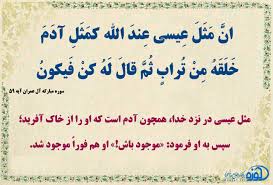 انَّ مَثَلَ عِیسی عِندَ اللّه کَمَثَلِ آدَمَ
خَلَقَهُ مِنْ تُرابٍ ثُمَّ قالَ لَهُ کُنْ فَیَکُونُ
سوره مبارکه آل عمران آیه ۵۹
مثل عیسی در نزد خدا، همچون آدم است که او را از خاک آفرید؛
سپس به او فرمود: «موجود باش!» او هم فوراً موجود شد.
حوزه